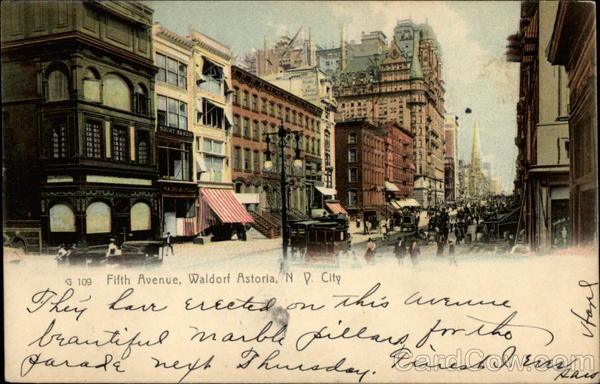 G 109 Fifth Avenue, Waldorf Astoria, N Y. City
They have erected on this Avenue
beautiful Marble pillars for the
parade next Thursday. Finest I Ever
saw
CardCow.com